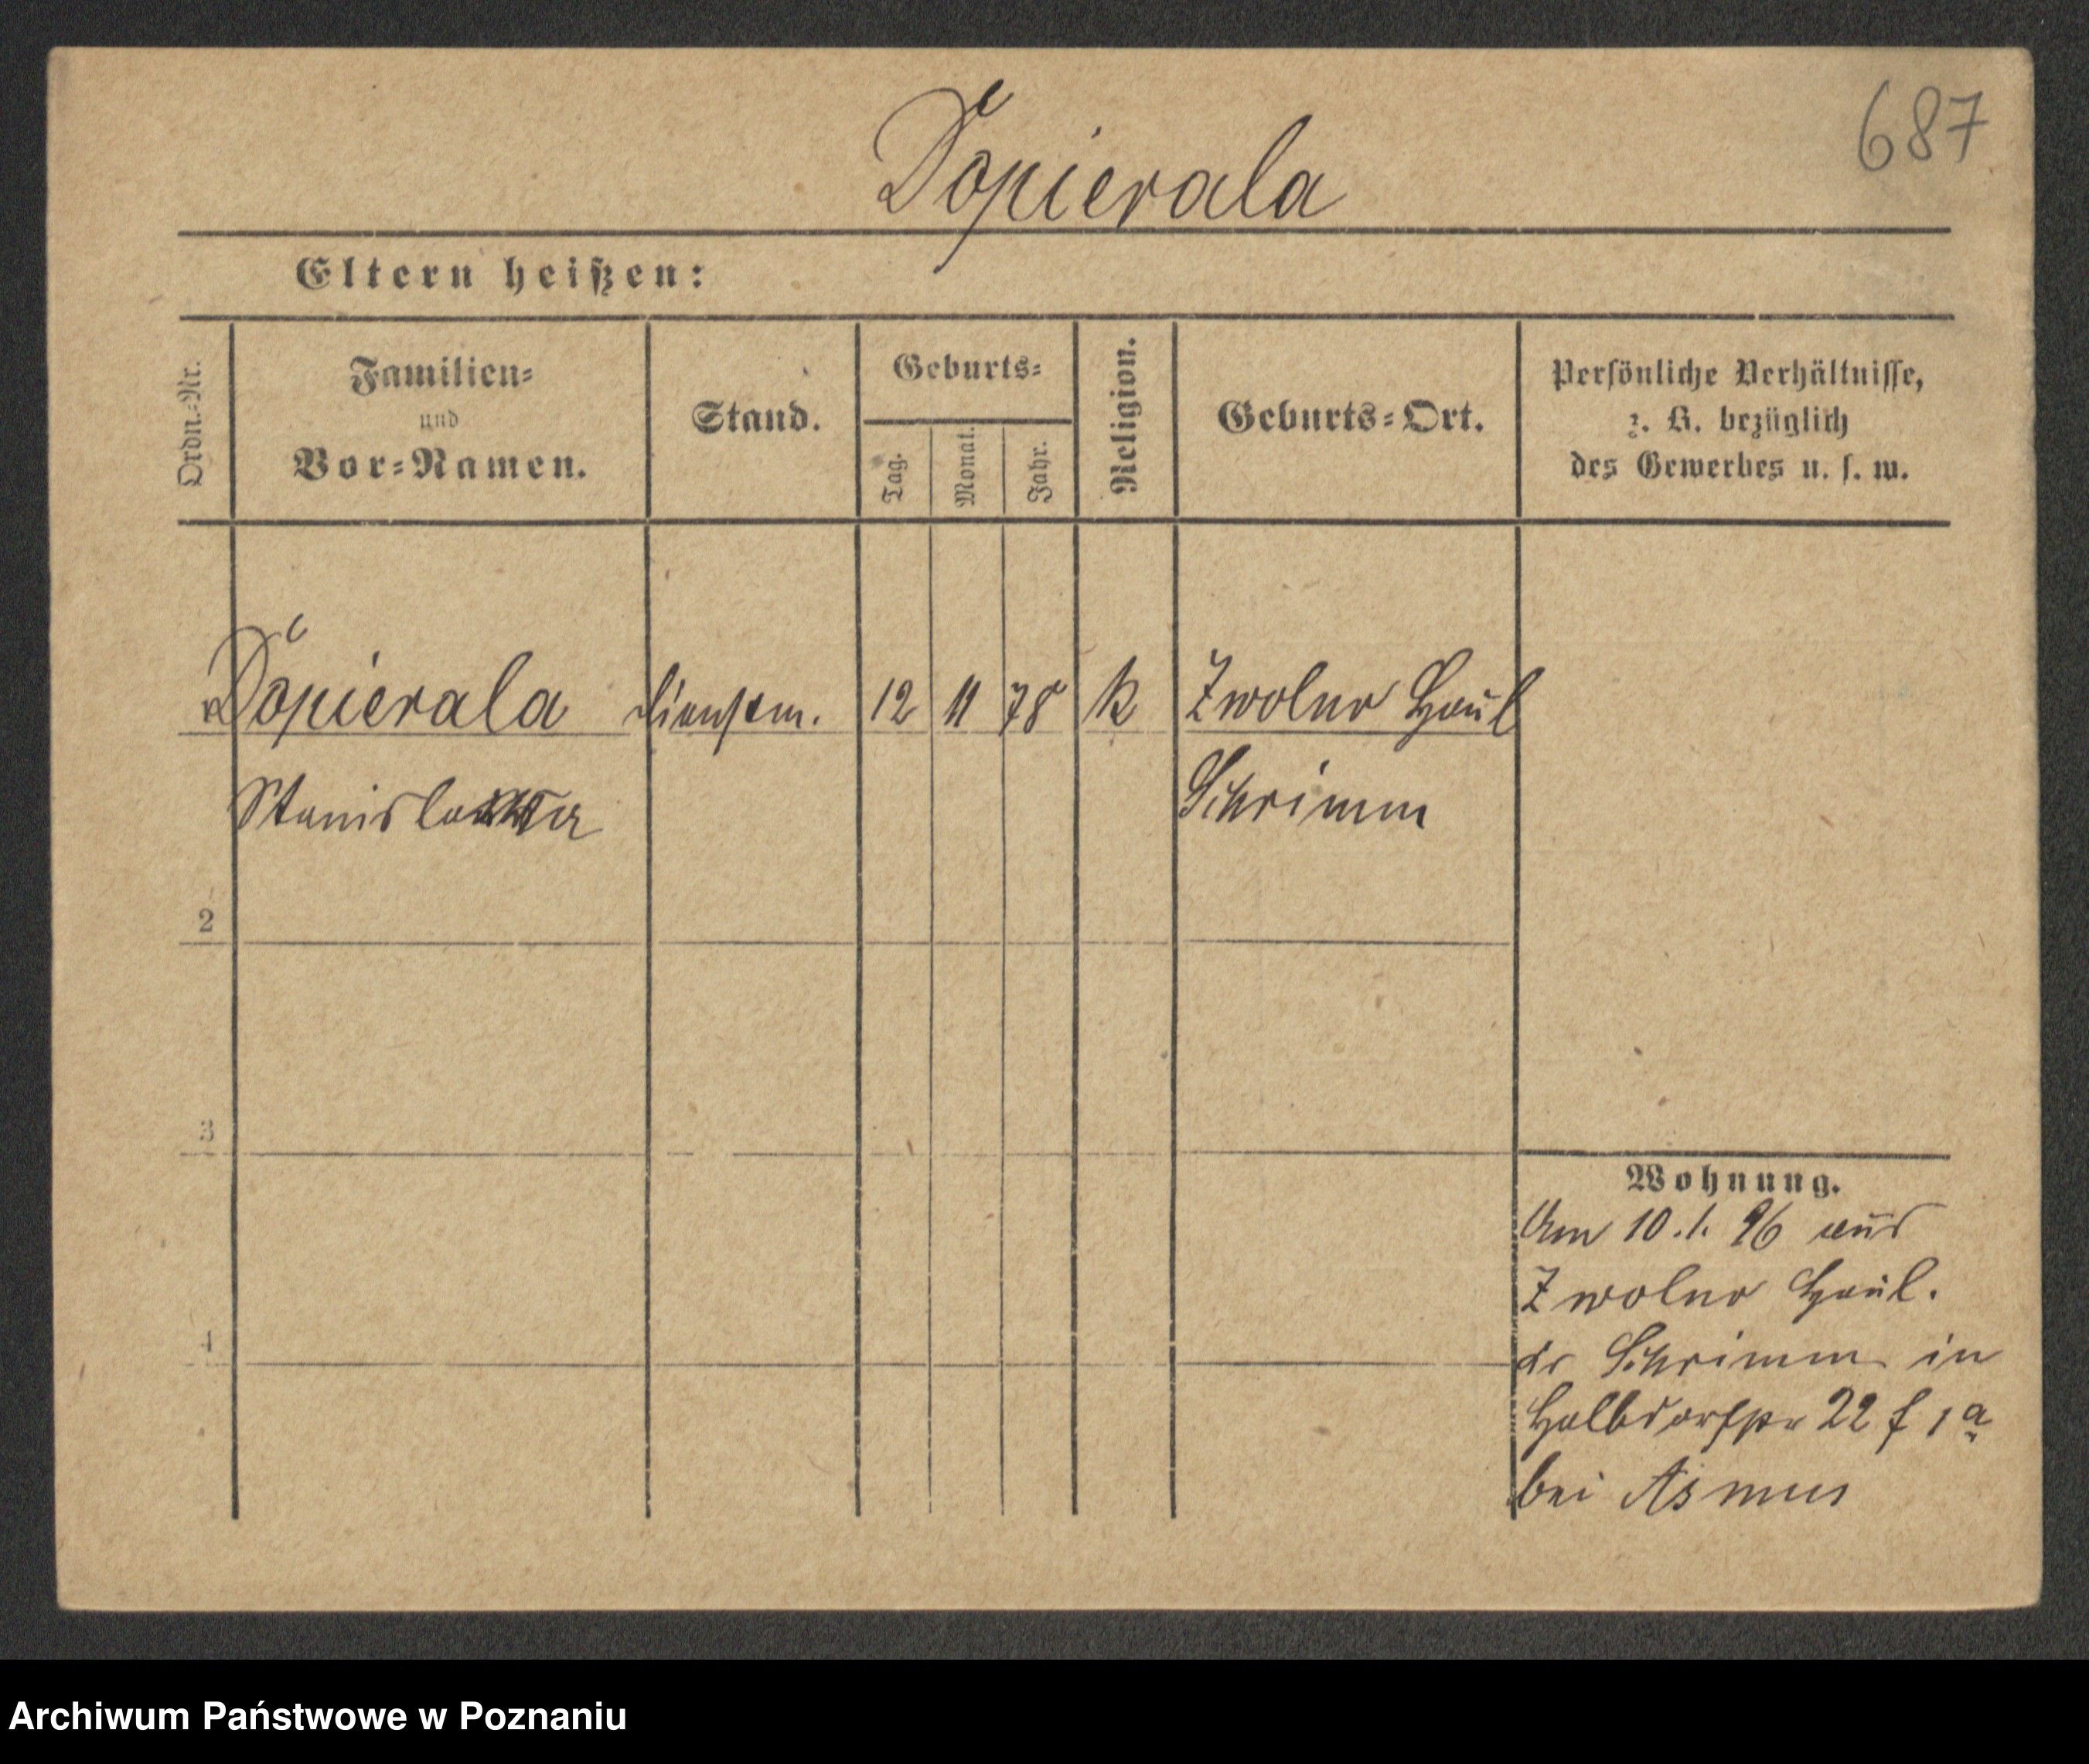 687
Dopierala
Eltern heißen:
Ordn.-Nr.
Familien-
und
Vor-Namen.
Stand.
Geburts-
Tag.
Monat.
Jahr.
Religion.
Geburts-Ort.
Persönliche Verhältnisse,
z. B. bezüglich
des Gewerbes u. s. w.
Dopierala 12 11 78 K Zwolno Haul
Stanislawa Schrimm
2
3
4
Wohnung.
Am 10.1. 96 aus
Zwolno Haul.
Schrimm in
Halbdorfstr 22 f 1 a
bei Asmus
Archiwum Państwowe w Poznaniu